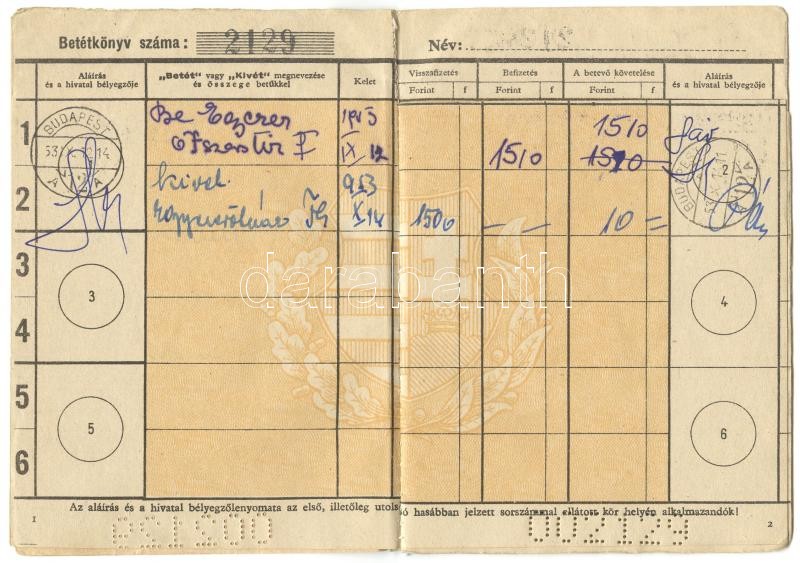 Betétkönyv száma: 2129
Név:
Aláírás és a hivatal bélyegzője
„Betét“ vagy „Kivét“ megnevezése és összege betűkkel
Kelet
Visszafizetés
Forint f
Befizetés
Forint f
A betevő követelése
Forint f
Aláírás és a hivatal bélyegzője
1
BUDAPEST
Be Ezerer
IX 12
1510
1510
1510
BUDAPEST
2
2
kivet
953
X 14
1500
— —
10 =
3
3
4
4
5
5
6
6
darabanth
Az aláírás és a hivatal bélyegzőlenyomata az első, illetőleg utols
ó hasábban jelzett sorszámmal ellátott kör helyén alkalmazandók!
1
2
002129